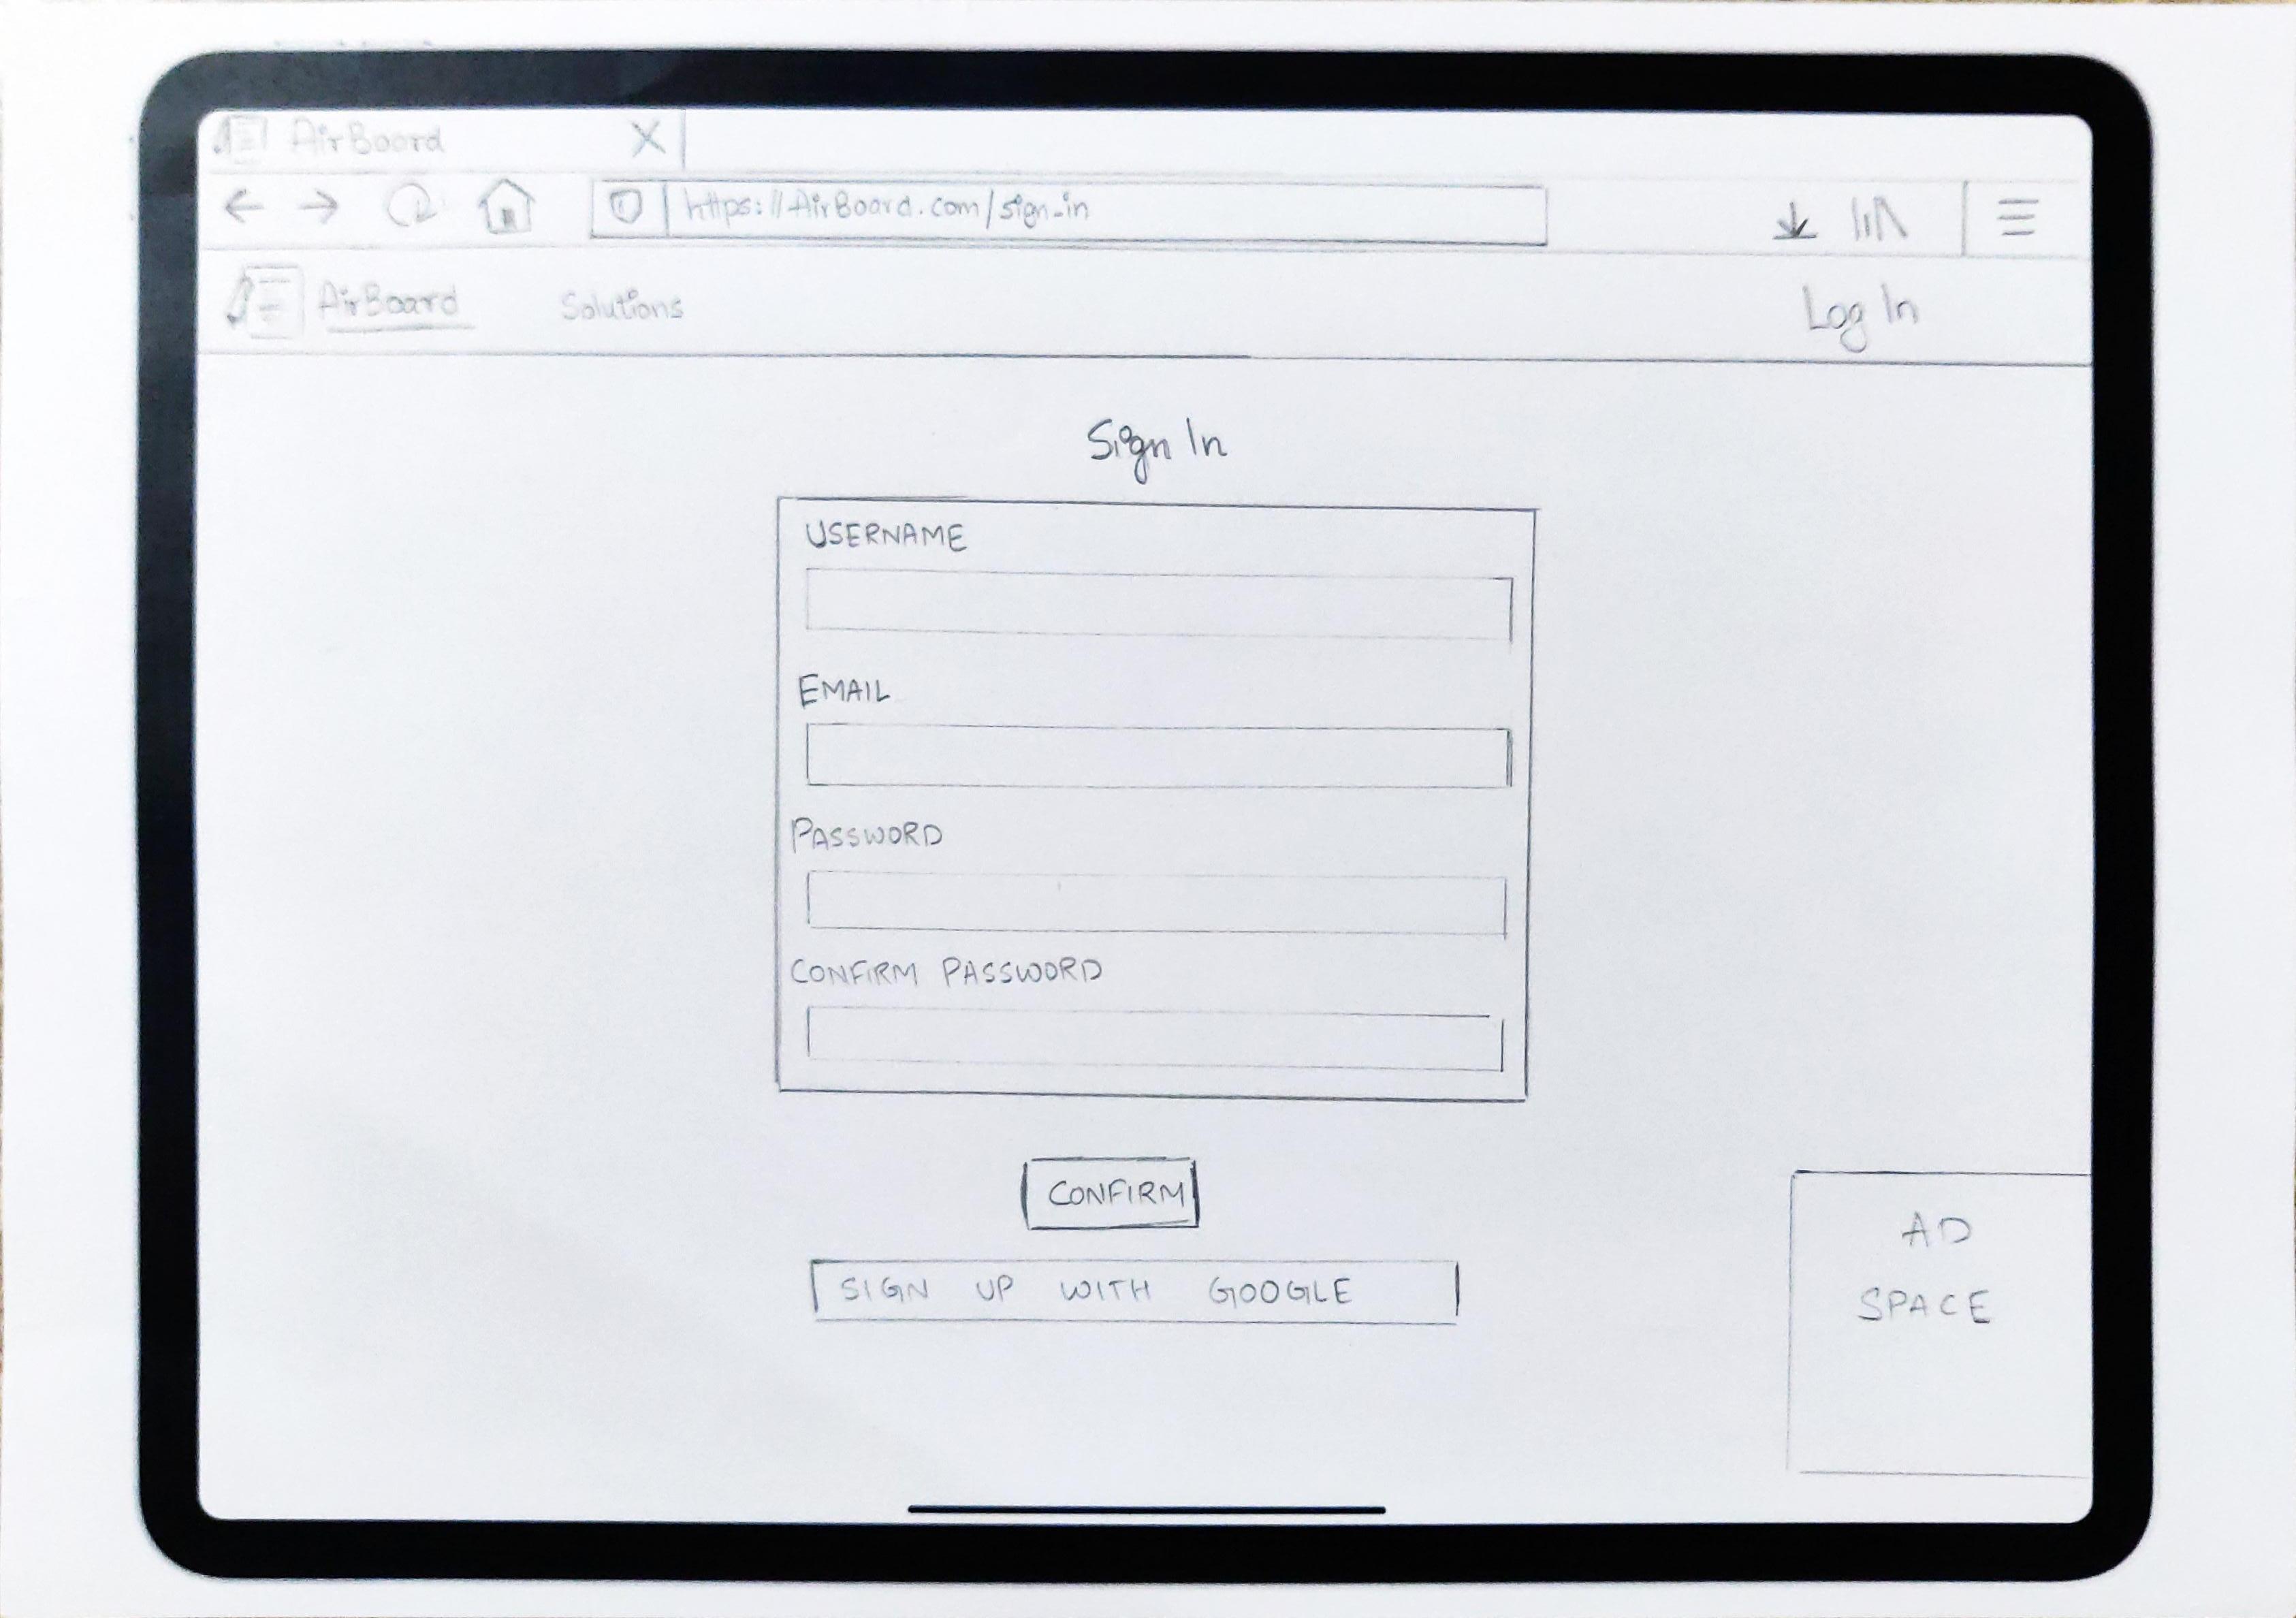 AirBoard X
https://AirBoard.com/sign-in
AirBoard Solutions Log In
Sign In
USERNAME
EMAIL
PASSWORD
CONFIRM PASSWORD
CONFIRM
SIGN UP WITH GOOGLE
AD
SPACE